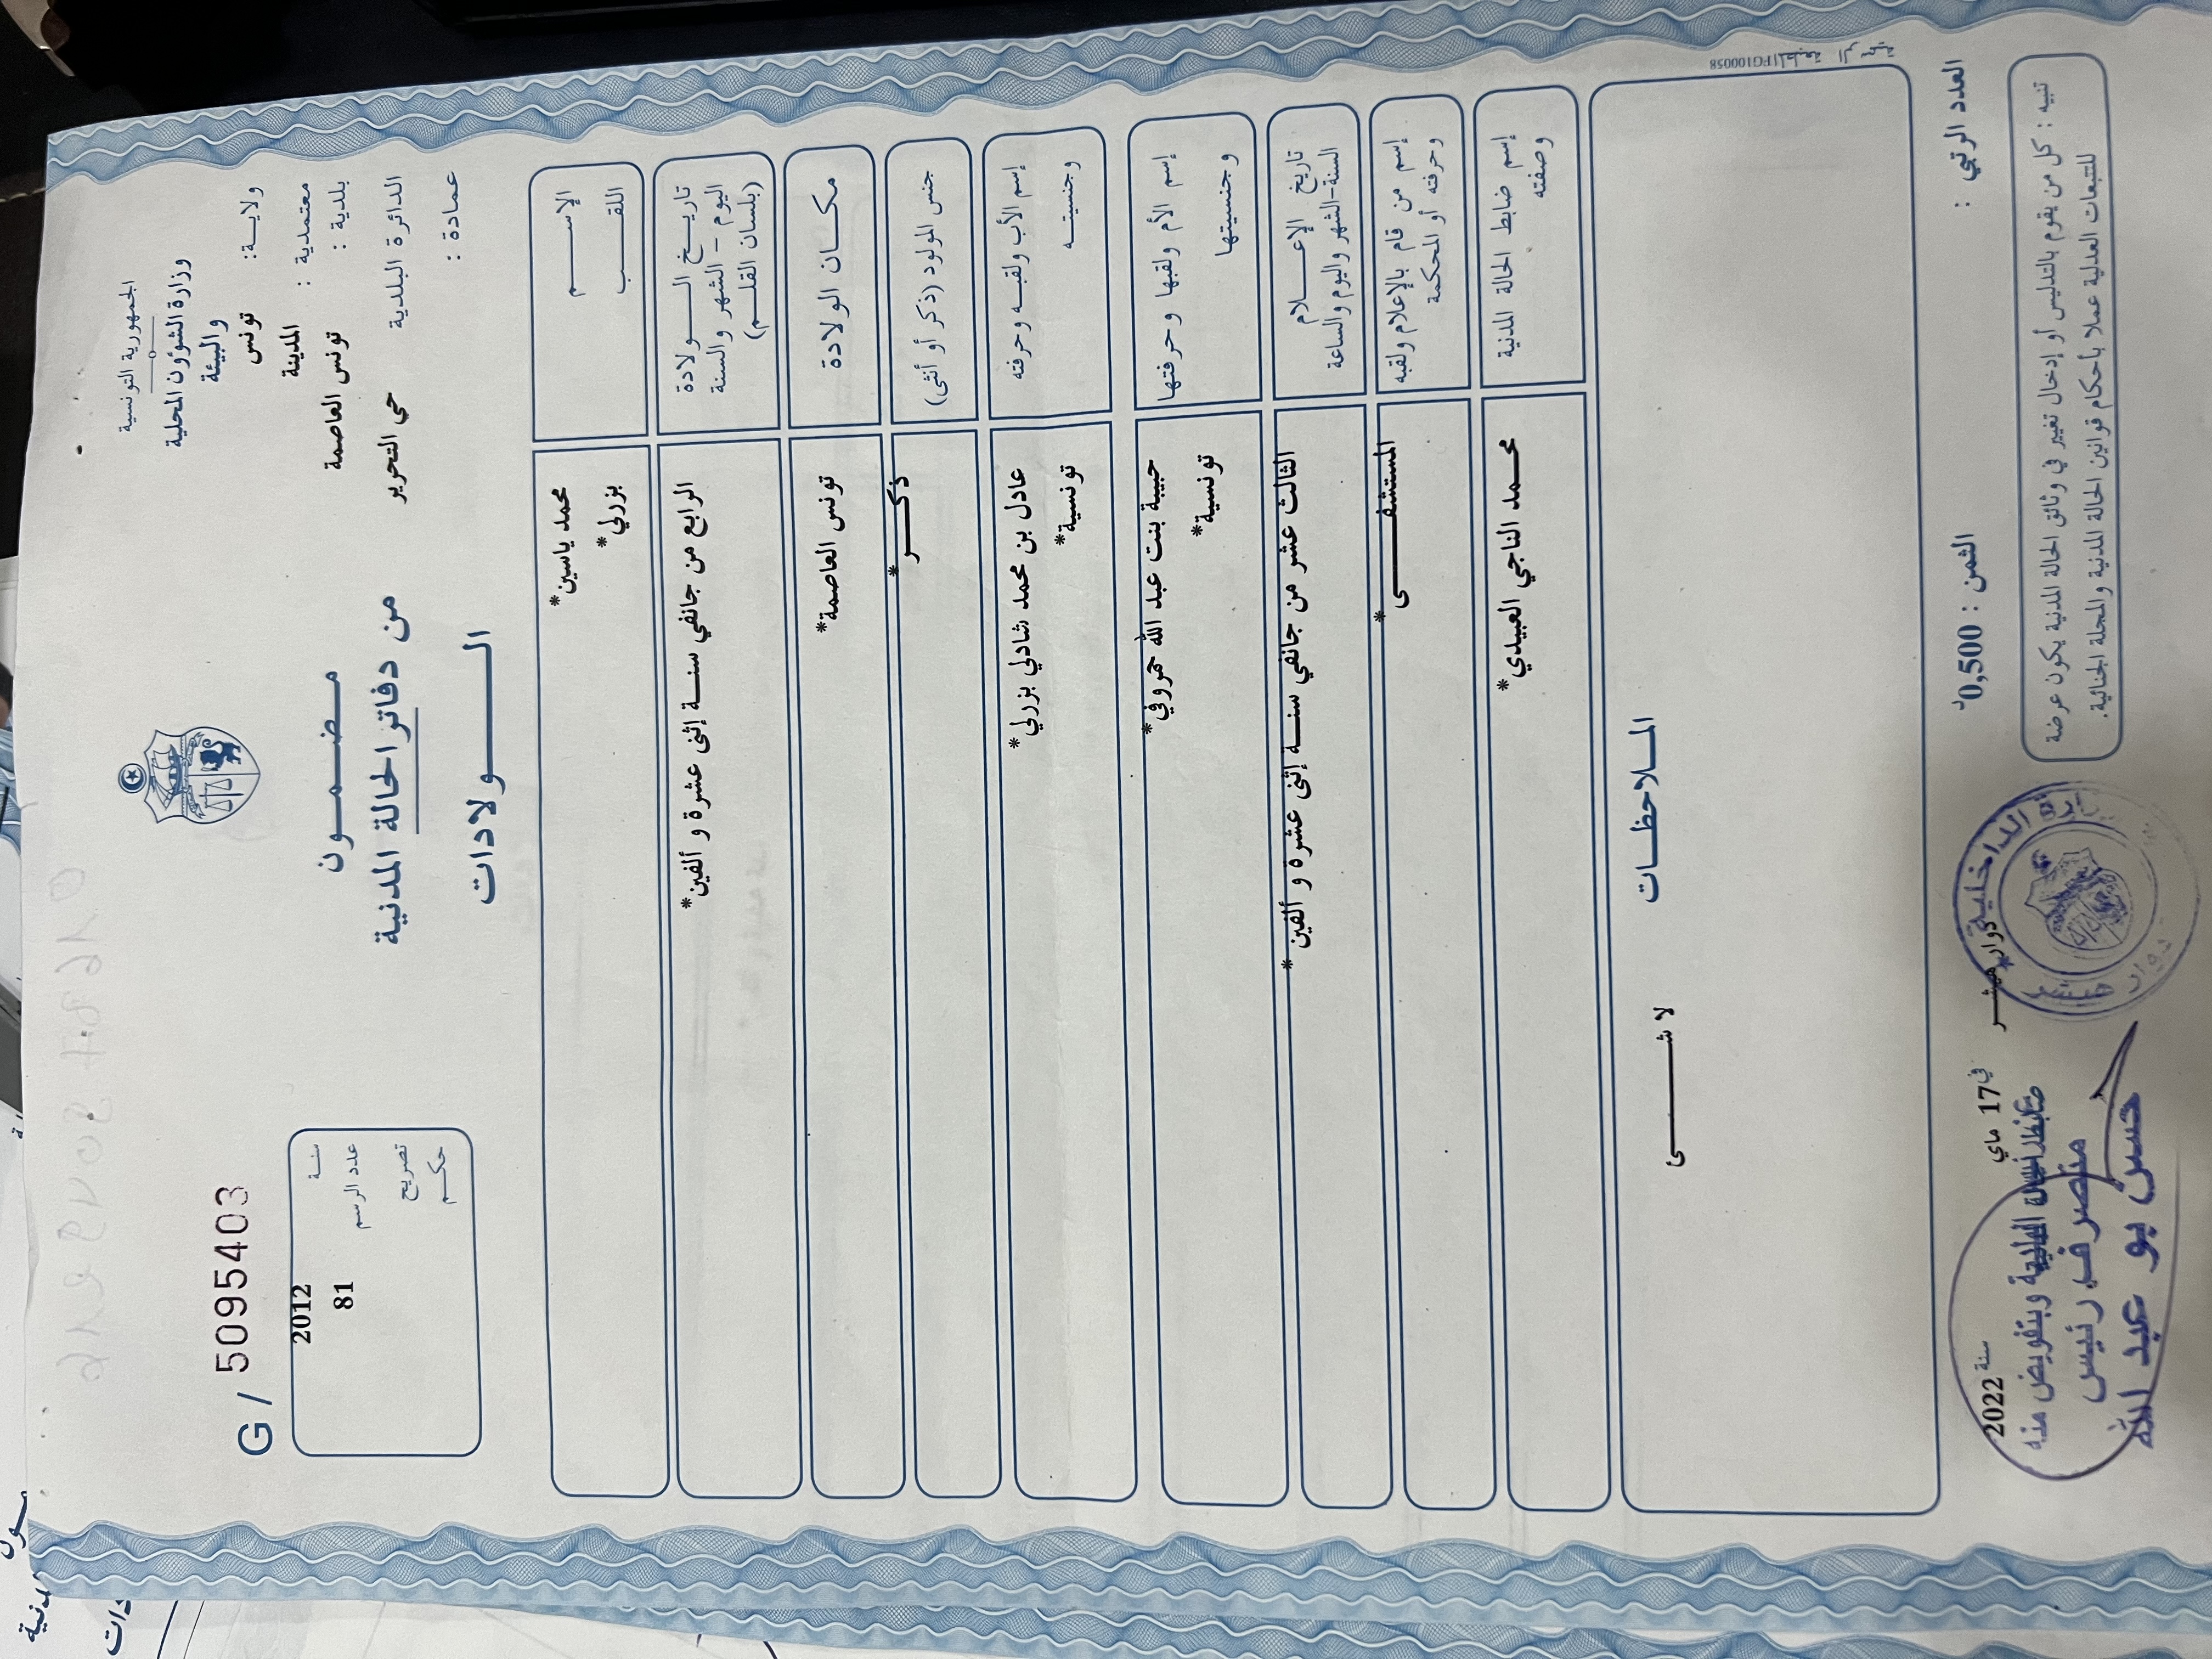 الجمهورية التونسية
وزارة الشؤون المحلية
والبيئة
ولاية: تونس
معتمدية : المدينة
بلدية : تونس العاصمة
الدائرة البلدية حي التحرير
عمادة :
مضمون
من دفاتر الحالة المدنية
الولادات
G / 5095403
سنة 2012
عدد الرسم 81
تصريح
حكم
الإسم محمد ياسين*
اللقب بزرلي*
تاريخ الولادة الرابع من جانفي سنة إثنى عشرة و ألفين*
اليوم - الشهر والسنة
(بلسان القلم)
مكان الولادة تونس العاصمة*
جنس المولود (ذكر أو أنثى) ذكر*
إسم الأب ولقبه وحرفته عادل بن محمد شادلي بزرلي*
وجنسيته تونسية*
إسم الأم ولقبها وحرفتها حبيبة بنت عبد الله حمروفي*
وجنسيتها تونسية*
تاريخ الإعلام الثالث عشر من جانفي سنة إثنى عشرة و ألفين*
السنة-الشهر واليوم والساعة
إسم من قام بالإعلام ولقبه المستشفى*
وحرفته أو المحكمة
إسم ضابط الحالة المدنية محمد الناجي العبيدي*
وصفته
الملاحظات
لا شئ
المطبعة الرسمية PG100058
العدد الرتبي :
الثمن : 0,500د
دوار هيشر في 17 ماي سنة 2022
تنبيه : كل من يقوم بالتدليس أو إدخال تغيير في وثائق الحالة المدنية يكون عرضة
للتتبعات العدلية عملا بأحكام قوانين الحالة المدنية والمجلة الجنائية.
الداخلية
دوار هيشر
ضابط الحالة المدنية وبتفويض منه
متصرف رئيس
حسن بو عبد الله